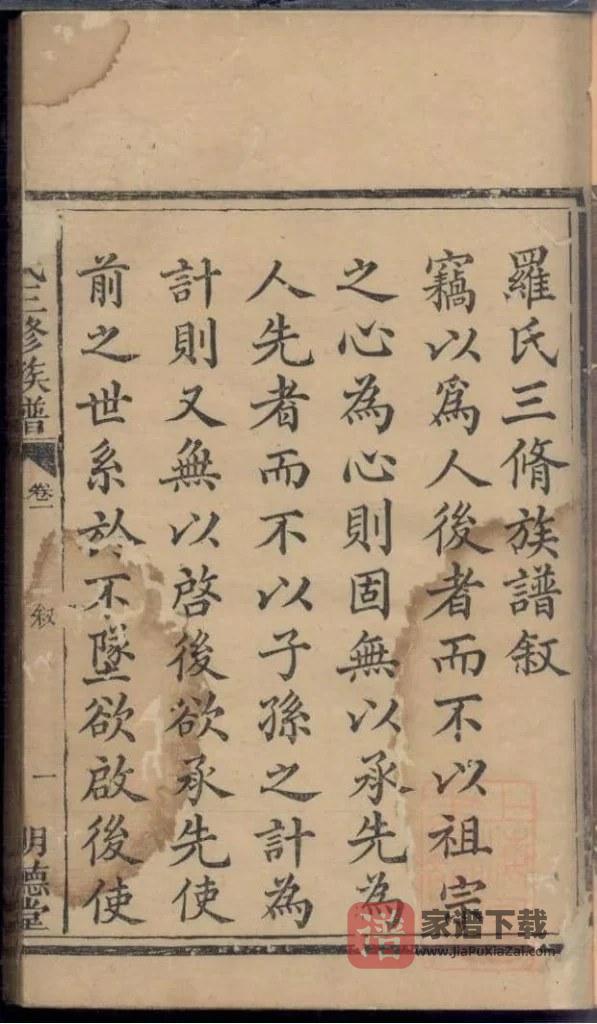 羅氏三脩族譜敘
竊以爲人後者而不以祖宗
之心為心則固無以承先為
人先者而不以子孫之計為
計則又無以啓後欲承先使
前之世系於不墜欲啟後使
氏三修族譜
卷一
敘
一
明德堂
譜
家谱下载
www.JiaPuXiaZai.com